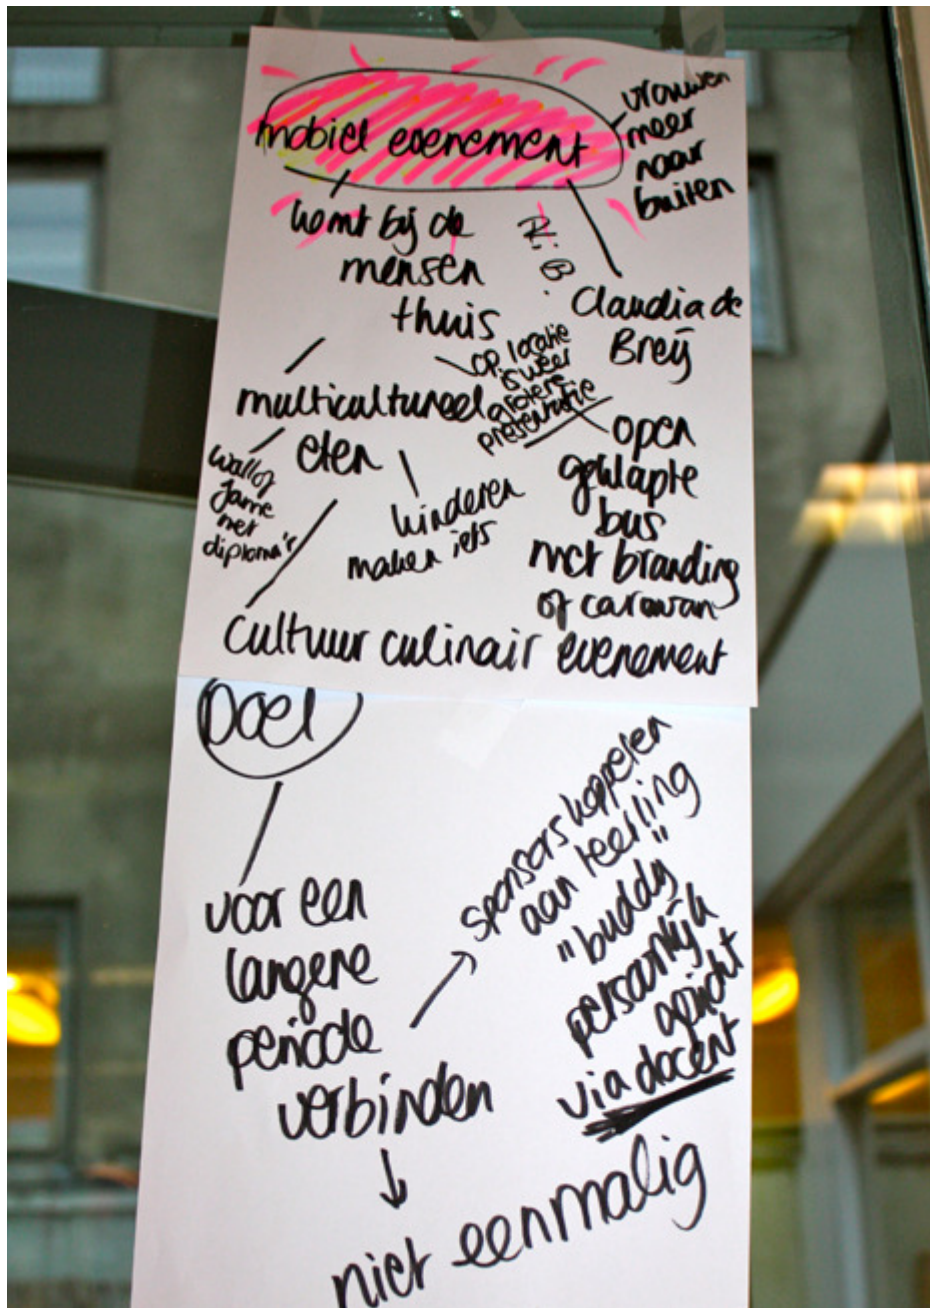 mobiel evenement
vrouwen
meer
naar
buiten
komt bij de
mensen
thuis
Claudia de
Breij
op locatie
is weer
grotere
presentatie
multicultureel
eten
wall of
fame
met
diploma's
kinderen
maken iets
open
geklapte
bus
met branding
of caravan
cultuur culinair evenement
Doel
voor een
langere
periode
verbinden
sponsors koppelen
aan leerling
"buddy"
persoonlijk
gericht
via docent
niet eenmalig